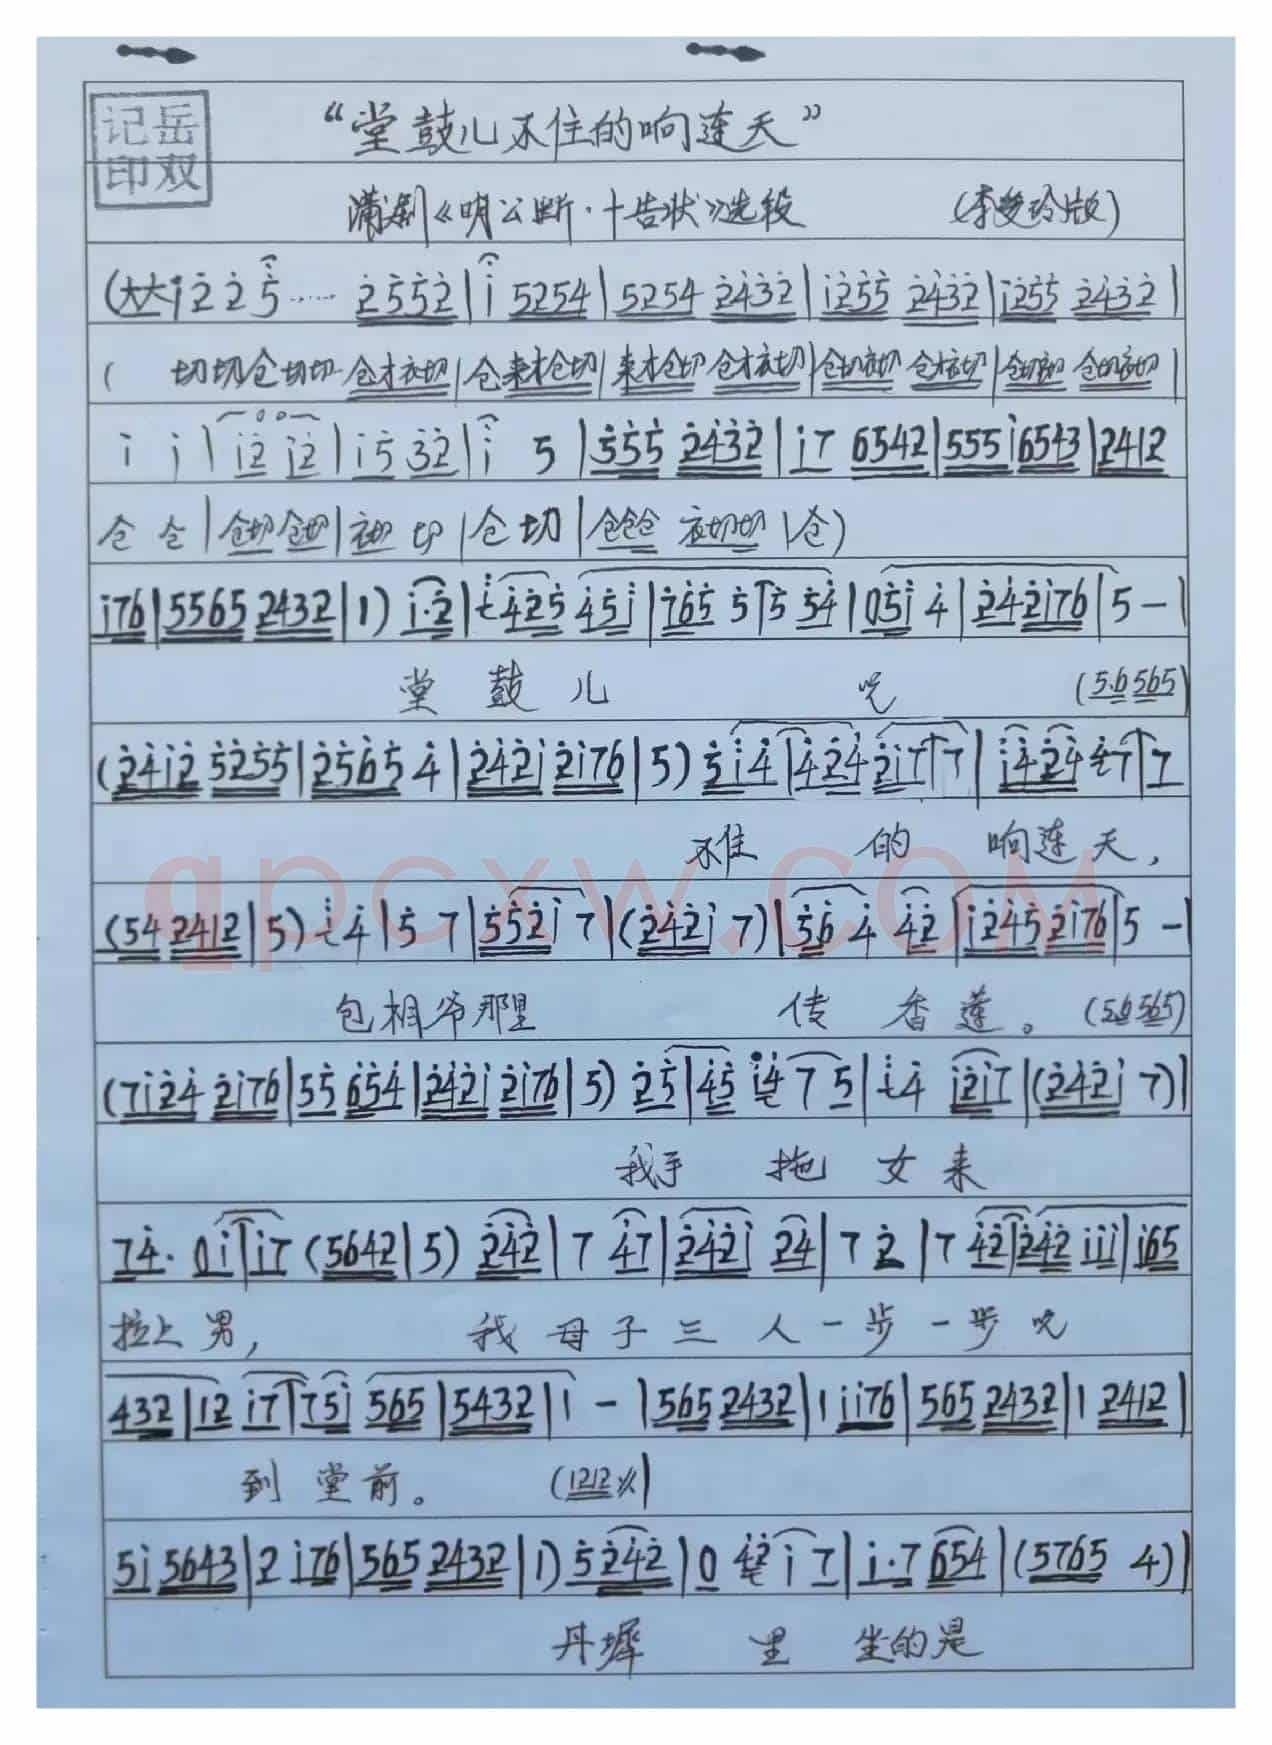 岳双
记印
“堂鼓儿不住的响连天”
蒲剧《明公断·十告状》选段 (李双玲版)
(大大i 2 2 5 …… 2552 | i 5254 | 5254 2432 | i255 2432 | i255 2432 |
( 切切仓切切 仓才衣切 | 仓来才仓切 | 来才仓切 仓才衣切 | 仓切衣切 仓才衣切 | 仓切衣切 仓切衣切 |
i i | i2 i2 | i5 32 | i 5 | 555 2432 | i7 6542 | 555i6543 | 2412
仓 仓 | 仓切仓切 | 衣切 切 | 仓 切 | 仓仓仓 衣切切 | 仓)
i76 | 5565 2432 | 1) i·2 | i425 45i | 765 5 | 5 54 | 05i 4 | 242i76 | 5 – |
堂 鼓 儿 呀 (5.6 565)
(24i2 5255 | 2565 4 | 242i 2i76 | 5) 5i4 | 424 2i7 | 7 | i424 47 | 7
不住 的 响连天,
(54 2412 | 5) i4 | 5 7 | 552i 7 | (242i 7) | 56 4 42 | i245 2i76 | 5 – |
包相爷那里 传 香 莲。 (56 565)
(7i24 2i76 | 55 654 | 242i 2i76 | 5) 25 | 45 i4 7 5 | i4 i2i7 | (242i 7) |
我手 拖 女 来
74. 0i | i7 (5642 | 5) 242 | 7 47 | 242i 24 | 7 2 | 7 42 | 242 iii | i65
拉上 男, 我 母 子 三 人 一 步 一 步 呀
432 | 12 i7 | 75i 565 | 5432 | 1 – | 565 2432 | 1 ii76 | 565 2432 | 1 2412 |
到 堂 前。 (1212 )
5i 5643 | 2 i76 | 565 2432 | 1) 5 242 | 0 42 i 7 | i·7 654 | (5765 4) |
丹墀 里 坐的是
qpcxw.COM